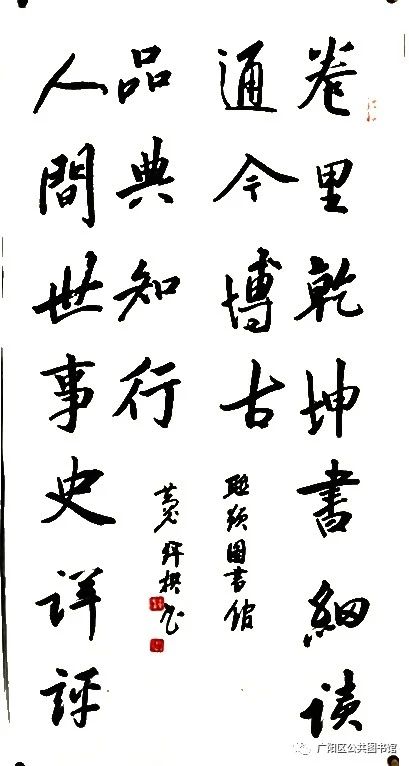 卷里乾坤書細读
通今博古
联颂图書馆
人間世事史详评
品典知行
广阳区公共图书馆